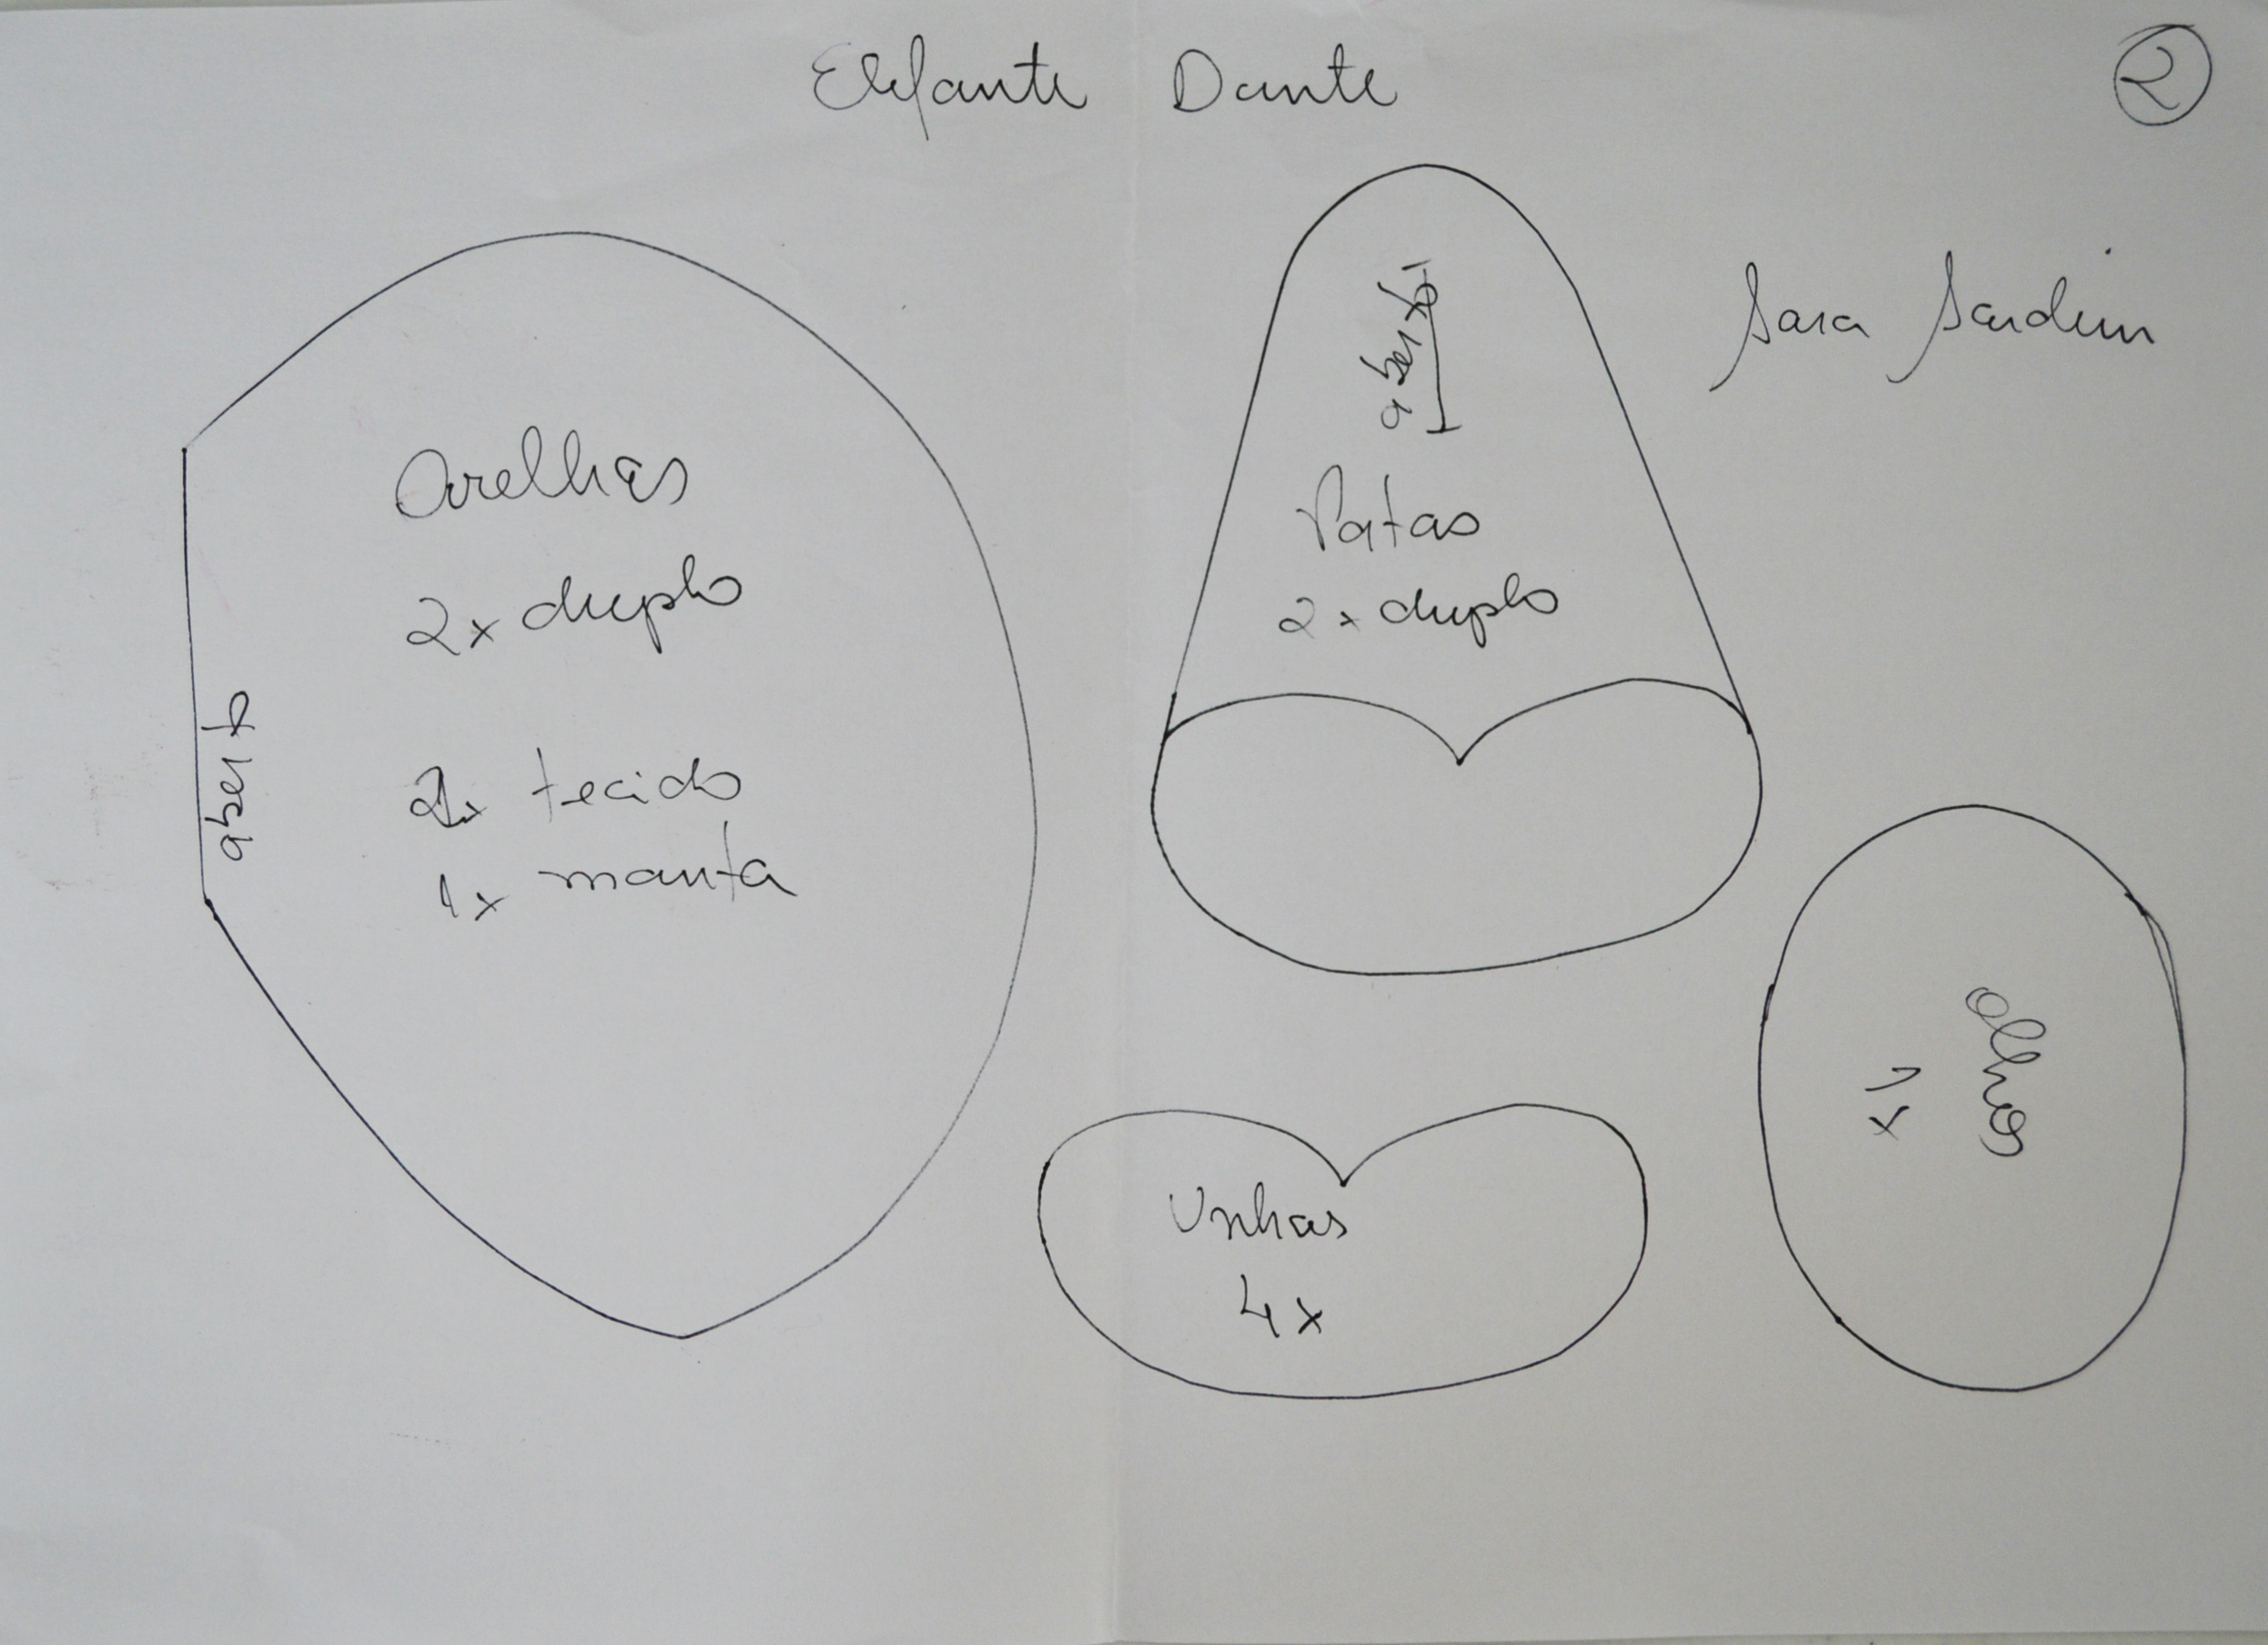 Elefante Dante
2
Sara
Orelhas
2x duplo
aberto
2x tecido
1x manta
aberto
Patas
2x duplo
Unhas
4x
olhos
1x